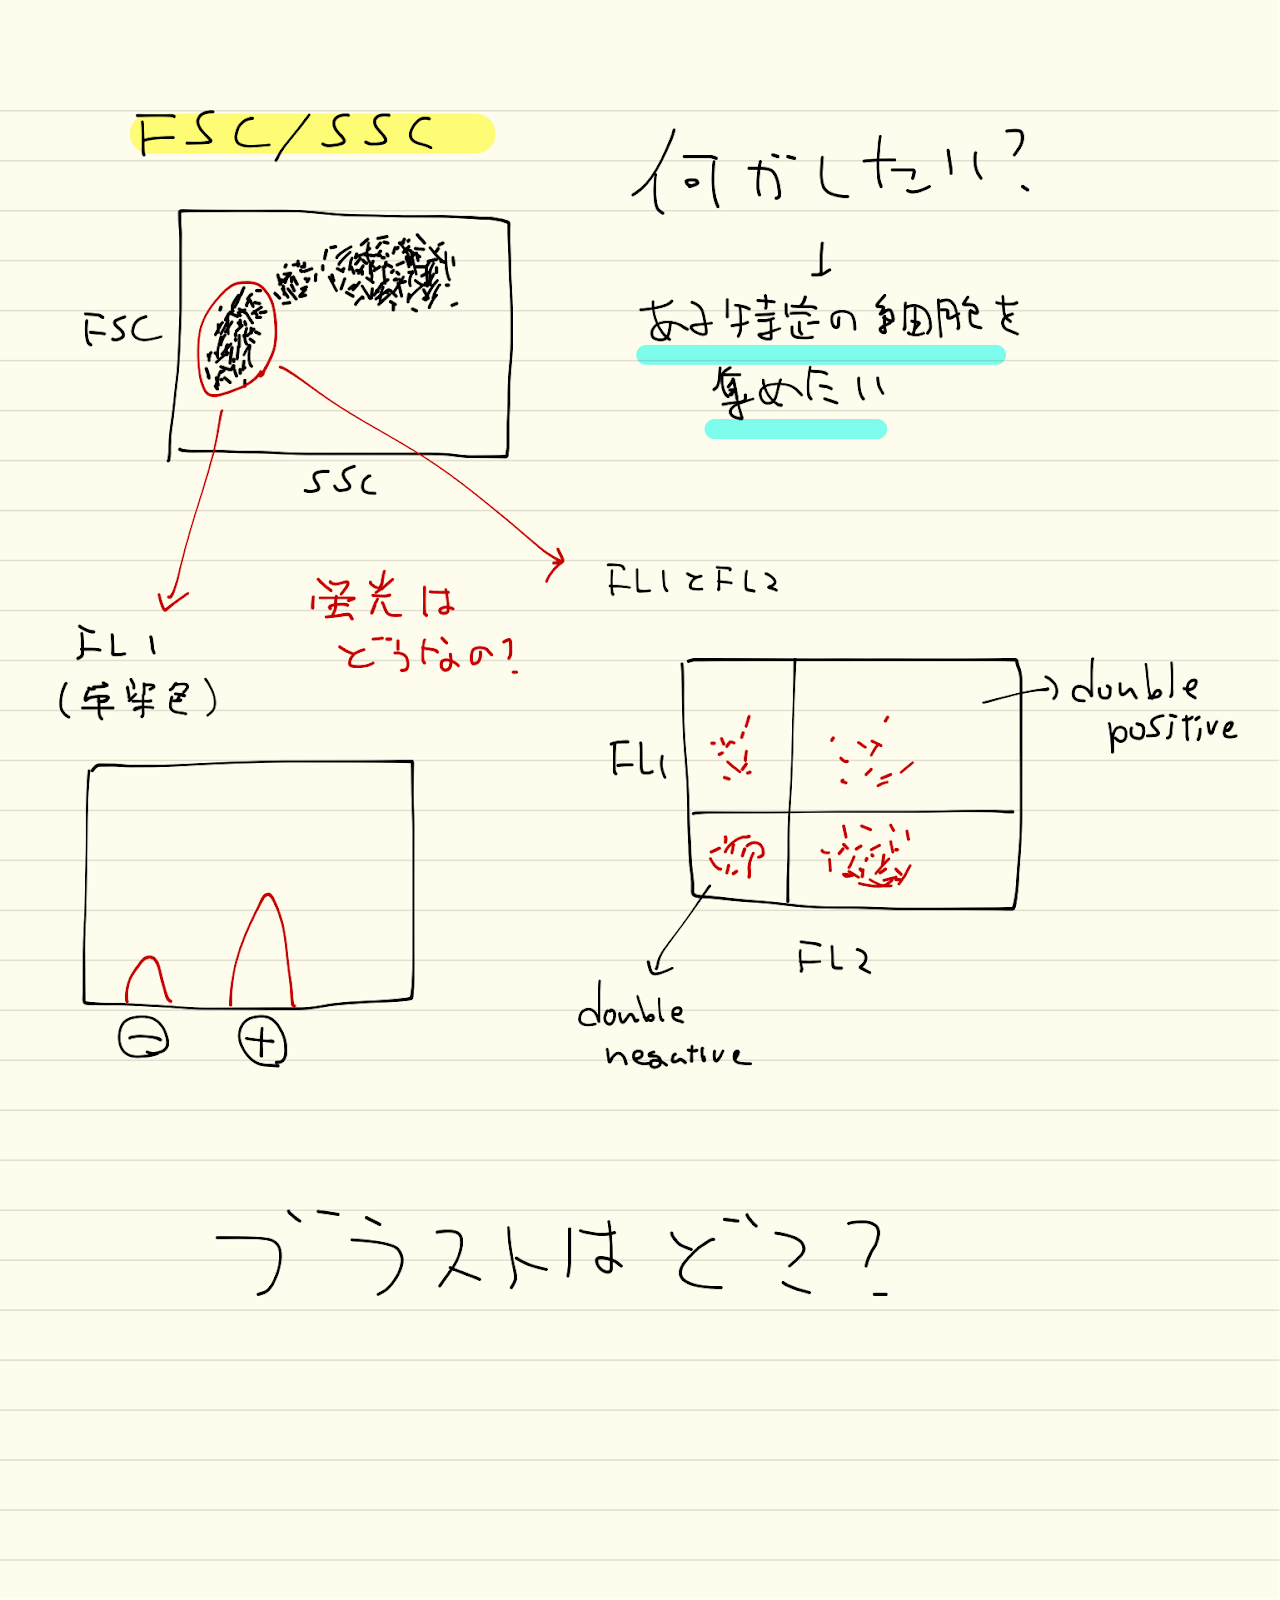 FSC/SSC
何がしたい?
↓
ある特定の細胞を
集めたい
FSC
SSC
蛍光は
どうなの?
FL1
(単染色)
⊖ ⊕
FL1とFL2
double
positive
FL1
FL2
double
negative
ブラストはどこ?